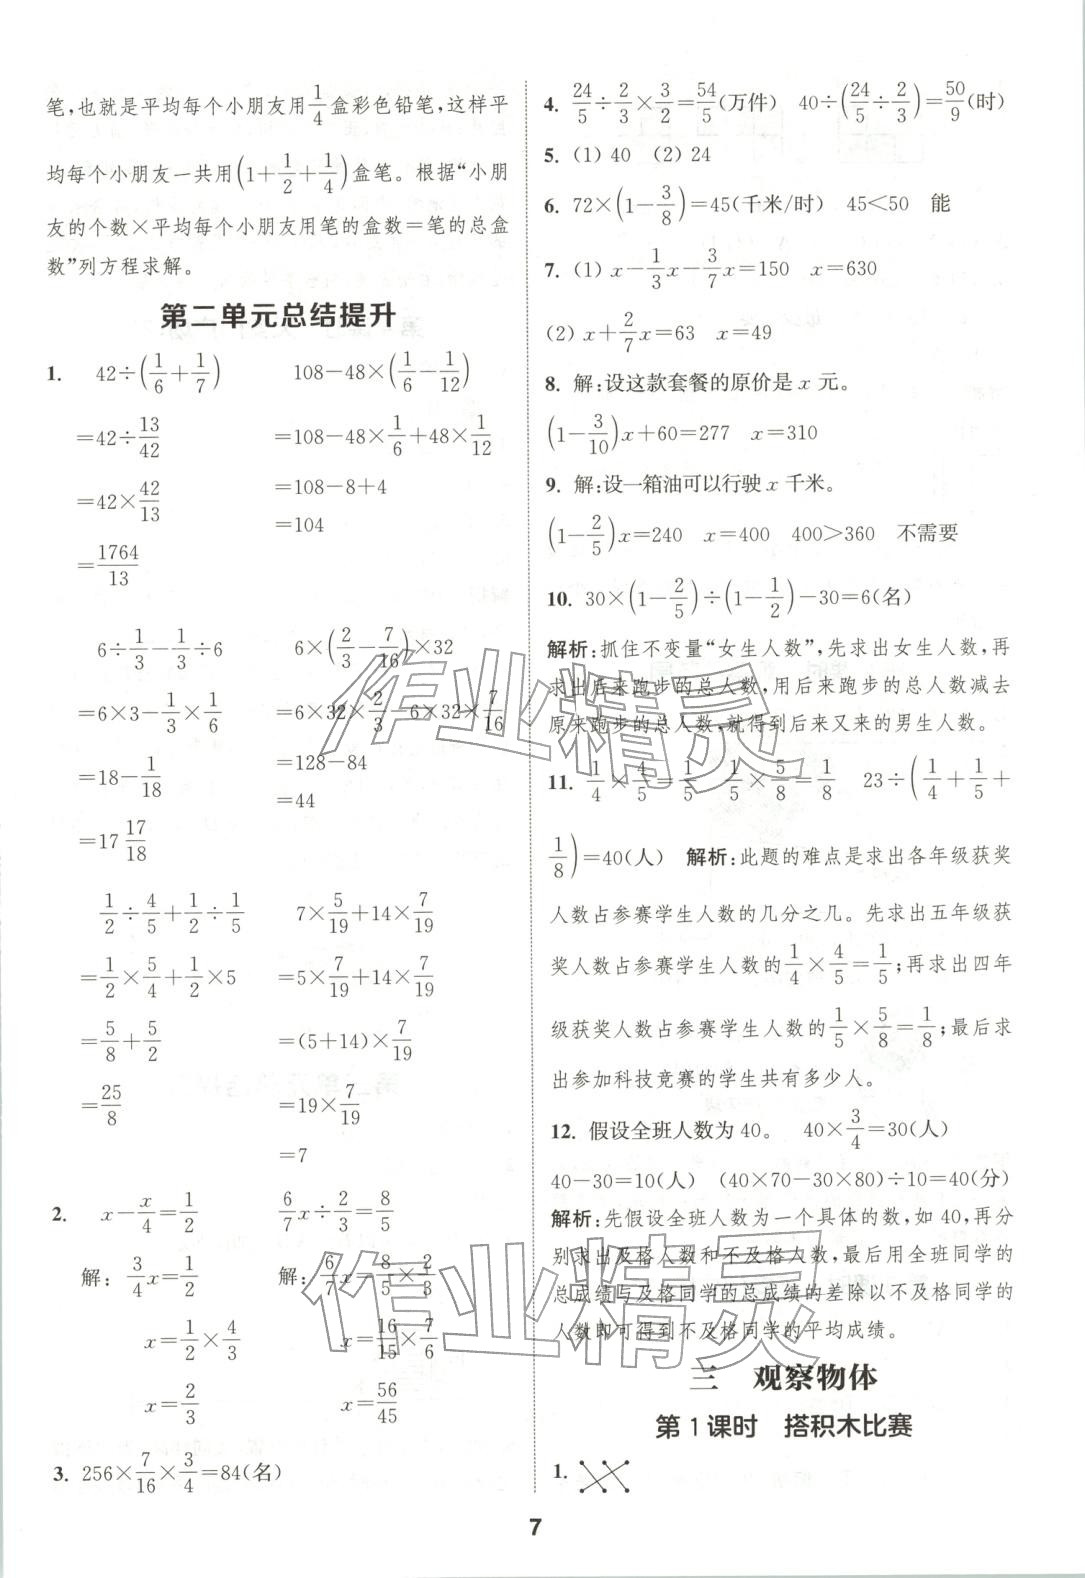 笔,也就是平均每个小朋友用1/4盒彩色铅笔,这样平
均每个小朋友一共用(1+1/2+1/4)盒笔。根据“小朋
友的个数×平均每个小朋友用笔的盒数=笔的总盒
数”列方程求解。
第二单元总结提升
1. 42÷(1/6+1/7) 108-48×(1/6-1/12)
=42÷13/42 =108-48×1/6+48×1/12
=42×42/13 =108-8+4
=1764/13 =104
6÷1/3-1/3÷6 6×(2/3-7/16)×32
=6×3-1/3×1/6 =6×32×2/3-6×32×7/16
=18-1/18 =128-84
=17 17/18 =44
1/2÷4/5+1/2÷1/5 7×5/19+14×7/19
=1/2×5/4+1/2×5 =5×7/19+14×7/19
=5/8+5/2 =(5+14)×7/19
=25/8 =19×7/19
=7
2. x-x/4=1/2 6/7x÷2/3=8/5
解:3/4x=1/2 解:6/7x=8/5×2/3
x=1/2×4/3 x=16/15×7/6
x=2/3 x=56/45
3. 256×7/16×3/4=84(名)
4. 24/5÷2/3×3/2=54/5(万件) 40÷(24/5÷2/3)=50/9(时)
5. (1) 40 (2) 24
6. 72×(1-3/8)=45(千米/时) 45<50 能
7. (1) x-1/3x-3/7x=150 x=630
(2) x+2/7x=63 x=49
8. 解:设这款套餐的原价是 x 元。
(1-3/10)x+60=277 x=310
9. 解:设一箱油可以行驶 x 千米。
(1-2/5)x=240 x=400 400>360 不需要
10. 30×(1-2/5)÷(1-1/2)-30=6(名)
解析:抓住不变量“女生人数”,先求出女生人数,再
求出后来跑步的总人数,用后来跑步的总人数减去
原来跑步的总人数,就得到后来又来的男生人数。
11. 1/4×4/5=1/5 1/5×5/8=1/8 23÷(1/4+1/5+
1/8)=40(人) 解析:此题的难点是求出各年级获奖
人数占参赛学生人数的几分之几。先求出五年级获
奖人数占参赛学生人数的1/4×4/5=1/5;再求出四年
级获奖人数占参赛学生人数的1/5×5/8=1/8;最后求
出参加科技竞赛的学生共有多少人。
12. 假设全班人数为 40。 40×3/4=30(人)
40-30=10(人) (40×70-30×80)÷10=40(分)
解析:先假设全班人数为一个具体的数,如 40,再分
别求出及格人数和不及格人数,最后用全班同学的
总成绩与及格同学的总成绩的差除以不及格同学的
人数即可得到不及格同学的平均成绩。
三 观察物体
第 1 课时 搭积木比赛
1.
7
作业精灵
作业精灵